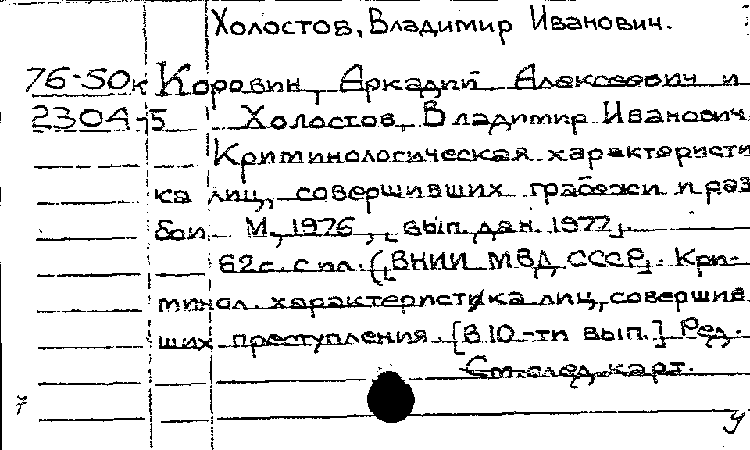 Холостов, Владимир Иванович.
76-50к Коровин, Аркадий Алексеевич и
2304-5 Холостов, Владимир Иванович
Криминологическая характеристи
ка лиц, совершивших грабежи и раз
бои. М., 1976, [вып. дан. 1977].
62с. с ил. (ВНИИ МВД СССР). Кри-
минол. характеристика лиц, соверши
ших преступления. [В 10-ти вып.] Ред.
См. след. карт.
7
У